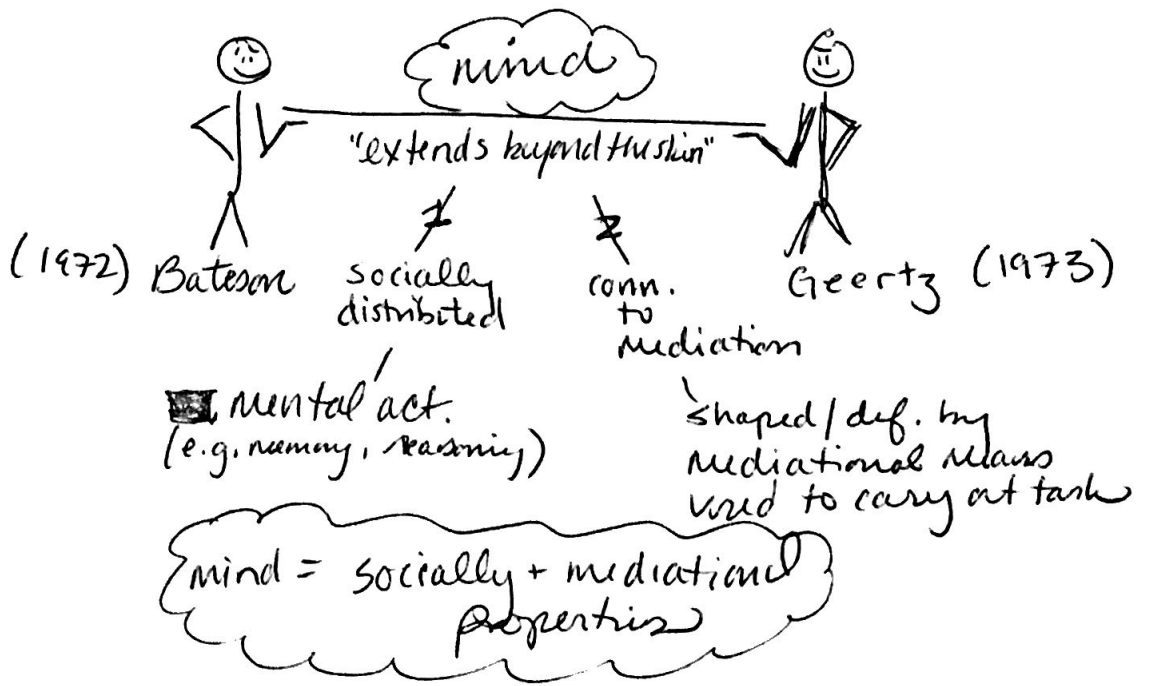 mind
"extends beyond the skin"
(1972) Bateson
socially
distributed
conn.
to
mediation
Geertz (1973)
mental act.
(e.g, memory, reasoning)
shaped/def. by
mediational means
used to carry out task
mind = socially + mediational
properties